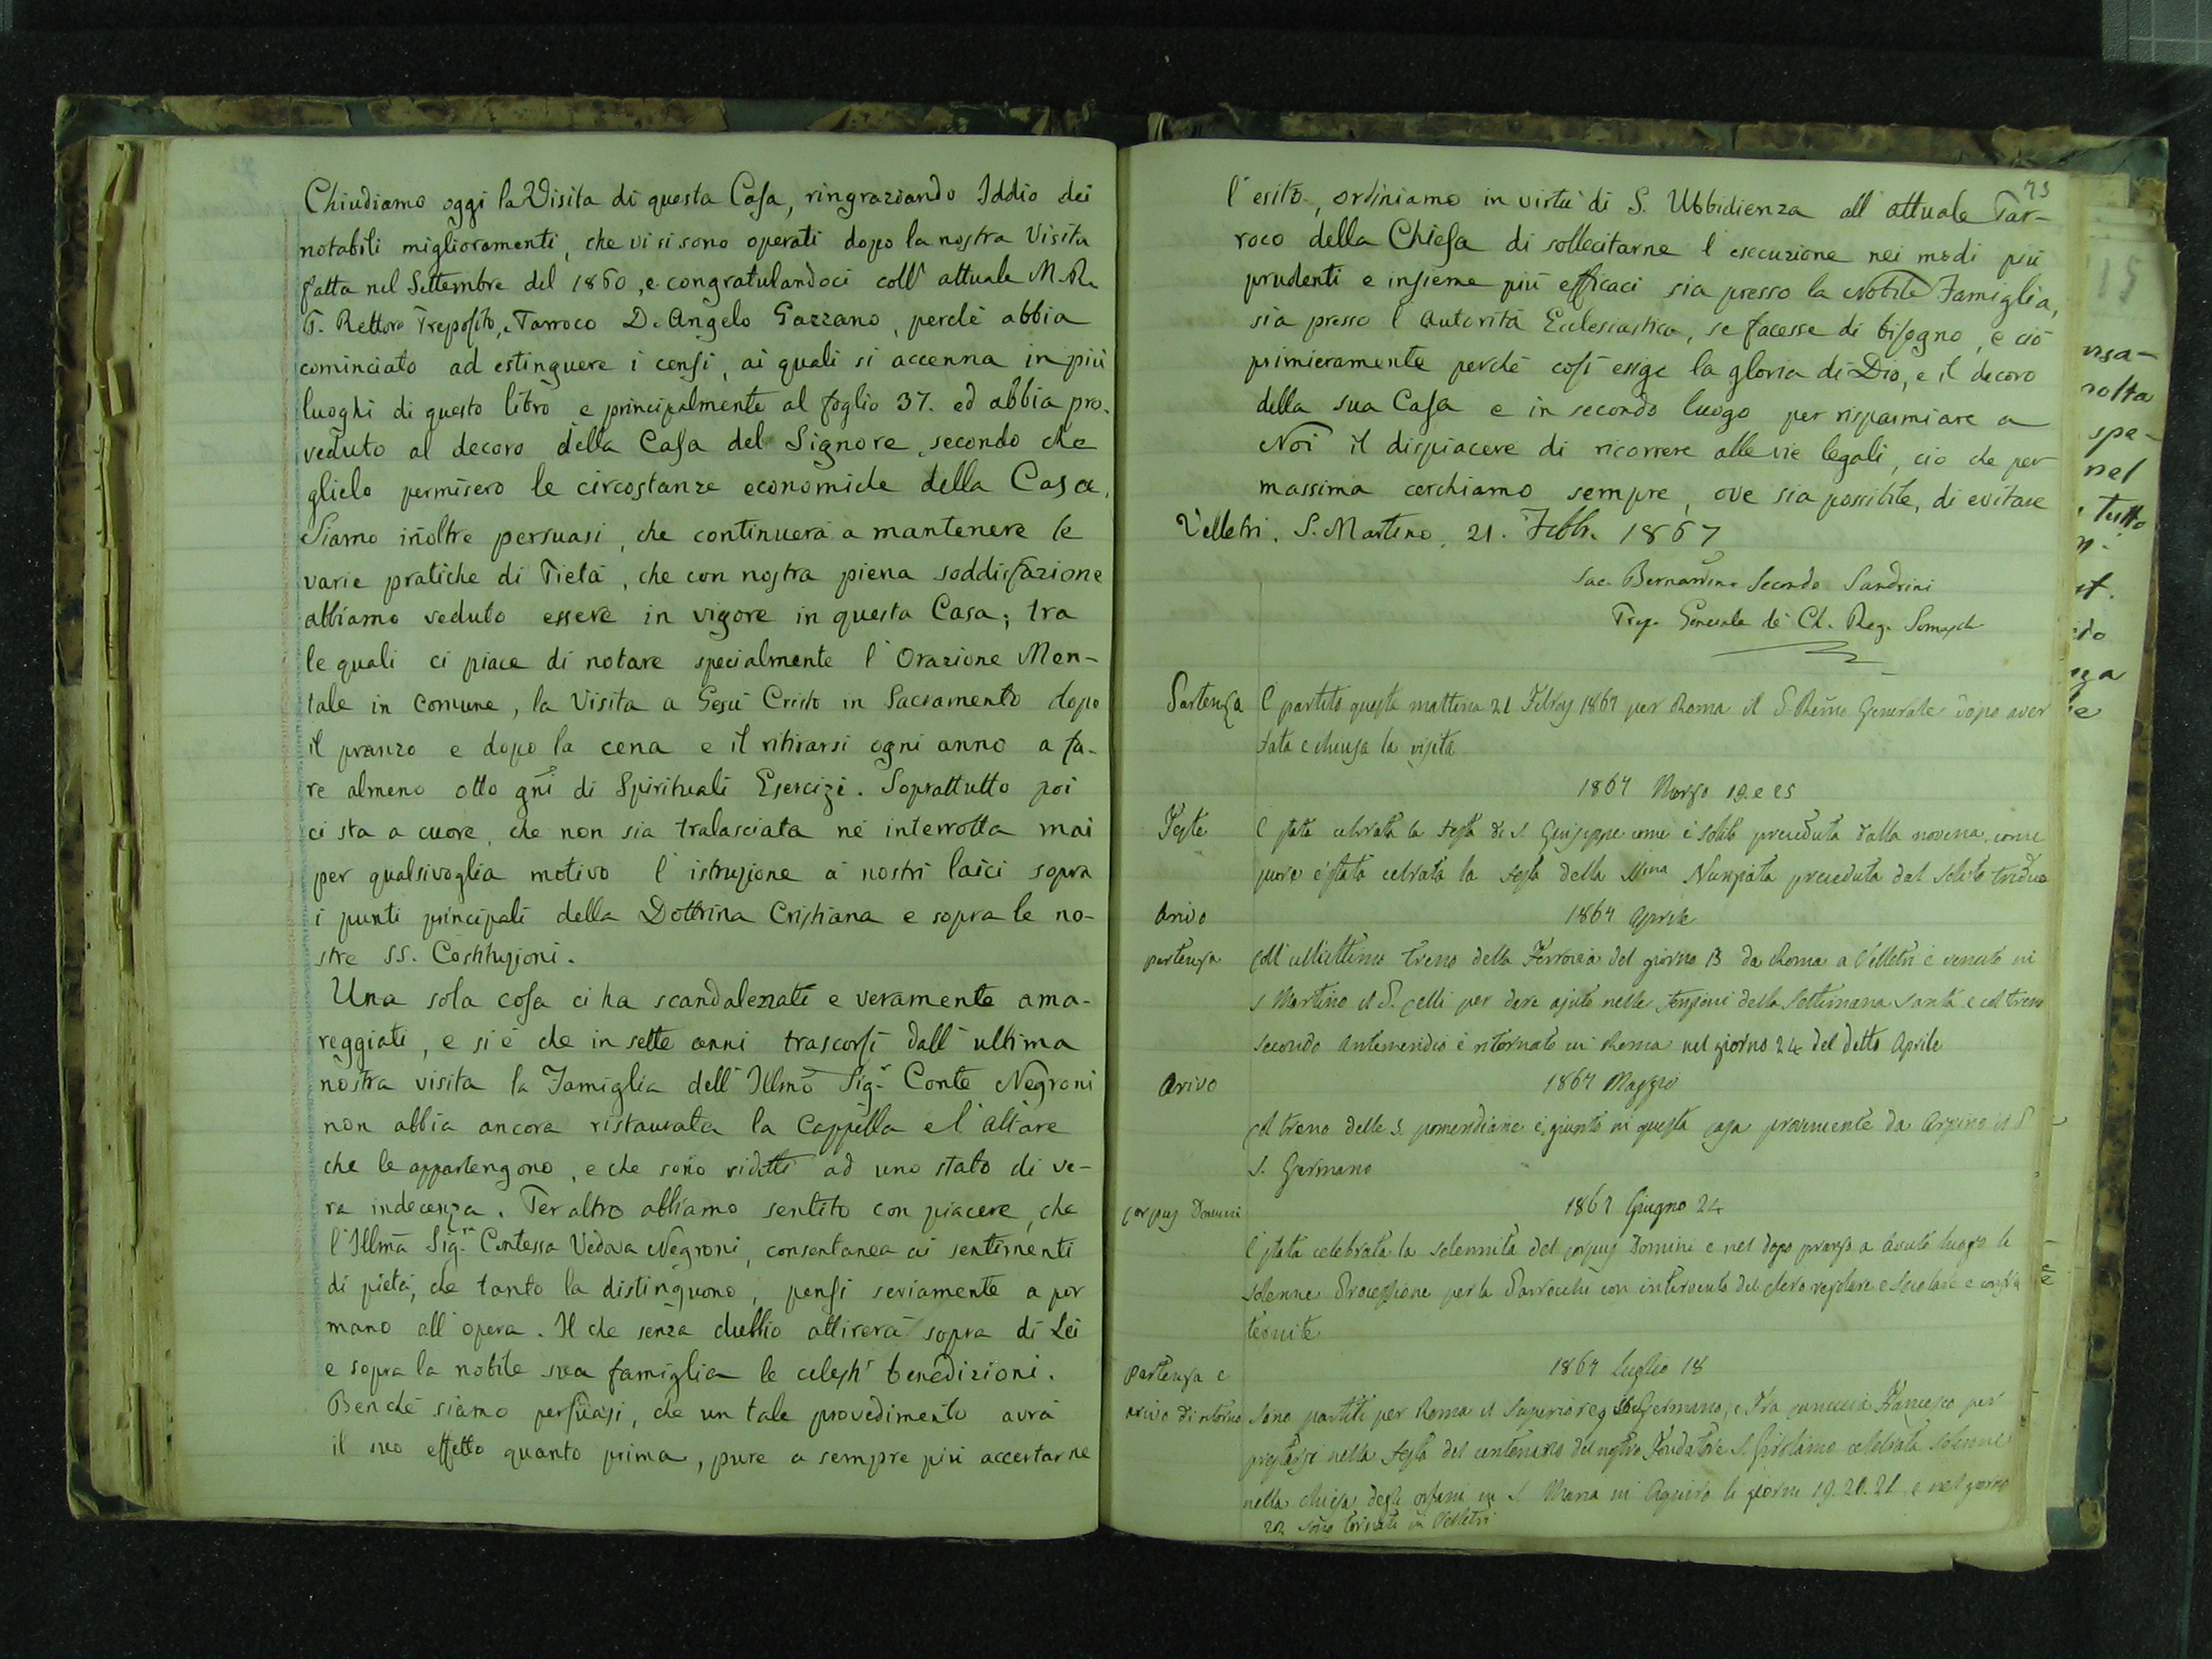 Chiudiamo oggi la Visita di questa Casa, ringraziando Iddio dei
notabili miglioramenti, che vi si sono operati dopo la nostra Visita
fatta nel Settembre del 1860, e congratulandoci coll' attuale M. R.
P. Rettore Preposito, Parroco D. Angelo Gazzano, perchè abbia
cominciato ad estinguere i censi, ai quali si accenna in più
luoghi di questo libro e principalmente al foglio 37. ed abbia pro-
veduto al decoro della Casa del Signore, secondo che
glielo permisero le circostanze economiche della Casa.
Siamo inoltre persuasi, che continuerà a mantenere le
varie pratiche di Pietà, che con nostra piena soddisfazione
abbiamo veduto essere in vigore in questa Casa; tra
le quali ci piace di notare specialmente l' Orazione Men-
tale in comune, la Visita a Gesù Cristo in Sacramento dopo
il pranzo e dopo la cena e il ritirarsi ogni anno a fa-
re almeno otto gni di Spirituali Esercizi. Soprattutto poi
ci sta a cuore, che non sia tralasciata nè interrotta mai
per qualsivoglia motivo l' istruzione a' nostri laici sopra
i punti principali della Dottrina Cristiana e sopra le no-
stre SS. Costituzioni.
Una sola cosa ci ha scandalezzati e veramente ama-
reggiati, e si è che in sette anni trascorsi dall' ultima
nostra visita la Famiglia dell' Illmo Sigr Conte Negroni
non abbia ancora ristaurata la Cappella e l' altare
che le appartengono, e che sono ridotti ad uno stato di ve-
ra indecenza. Per altro abbiamo sentito con piacere, che
l' Illma Sigra Contessa Vedova Negroni, consentanea ai sentimenti
di pietà, che tanto la distinguono, pensi seriamente a por
mano all' opera. Il che senza dubbio attirerà sopra di Lei
e sopra la nobile sua famiglia le celesti benedizioni.
Benchè siamo persuasi, che un tale provedimento avrà
il suo effetto quanto prima, pure a sempre più accertarne
73
l' esito, ordiniamo in virtù di S. Ubbidienza all' attuale Par-
roco della Chiesa di sollecitarne l' esecuzione nei modi più
prudenti e insieme più efficaci sia presso la Nobile Famiglia,
sia presso l' Autorità Ecclesiastica, se facesse di bisogno, e ciò
primieramente perchè così esige la gloria di Dio, e il decoro
della sua Casa e in secondo luogo per risparmiare a
Noi il dispiacere di ricorrere alle vie legali, ciò che per
massima cerchiamo sempre, ove sia possibile, di evitare
Velletri, S. Martino, 21. Febbr. 1867
Sac. Bernardino Secondo Sandrini
Prep. Generale de' Ch. Reg. Somaschi
Partenza È partito questa mattina 21 1867 per Roma il P. Rmo Generale dopo aver
fata e chiusa la visita
1867 Marzo 19. e 25
Feste È stata celebrata la festa di S. Giuseppe come è solito preceduta dalla novena, come
pure è stata celebrata la festa della SSma Nunziata preceduta dal solito triduo
Arivo 1867 Aprile
partenza Coll' treno della Ferrovia del giorno 13 da Roma a Velletri è venuto in
S Martino il P. Celli per dare ajuto nelle funzioni della Settimana Santa e col treno
secondo antemeridio è ritornato in Roma nel giorno 24 del detto Aprile
Arivo 1867 Maggio
Col treno delle 5 pomeridiane è giunto in questa casa proveniente da Arpino il P
S. Germano
Corpus Domini 1867 Giugno 24
È stata celebrata la solennità del Corpus Domini e nel dopo pranzo a avuto luogo la
solenne Processione per la Parrocchia con intervento del clero regolare e secolare e confra
ternite
1867 Luglio 18
Partenza e
arivo di ritorno Sono partiti per Roma il Superiore S. Germano, e Fra Francesco per
prestarsi nella festa del centenario del nostro Fondatore S. Girolamo celebrata solenne
nella chiesa degli orfani in S. Maria in Aquiro li giorni 19. 20. 21 e nel giorno
22 sono tornati in Velletri
15
nel
tutto